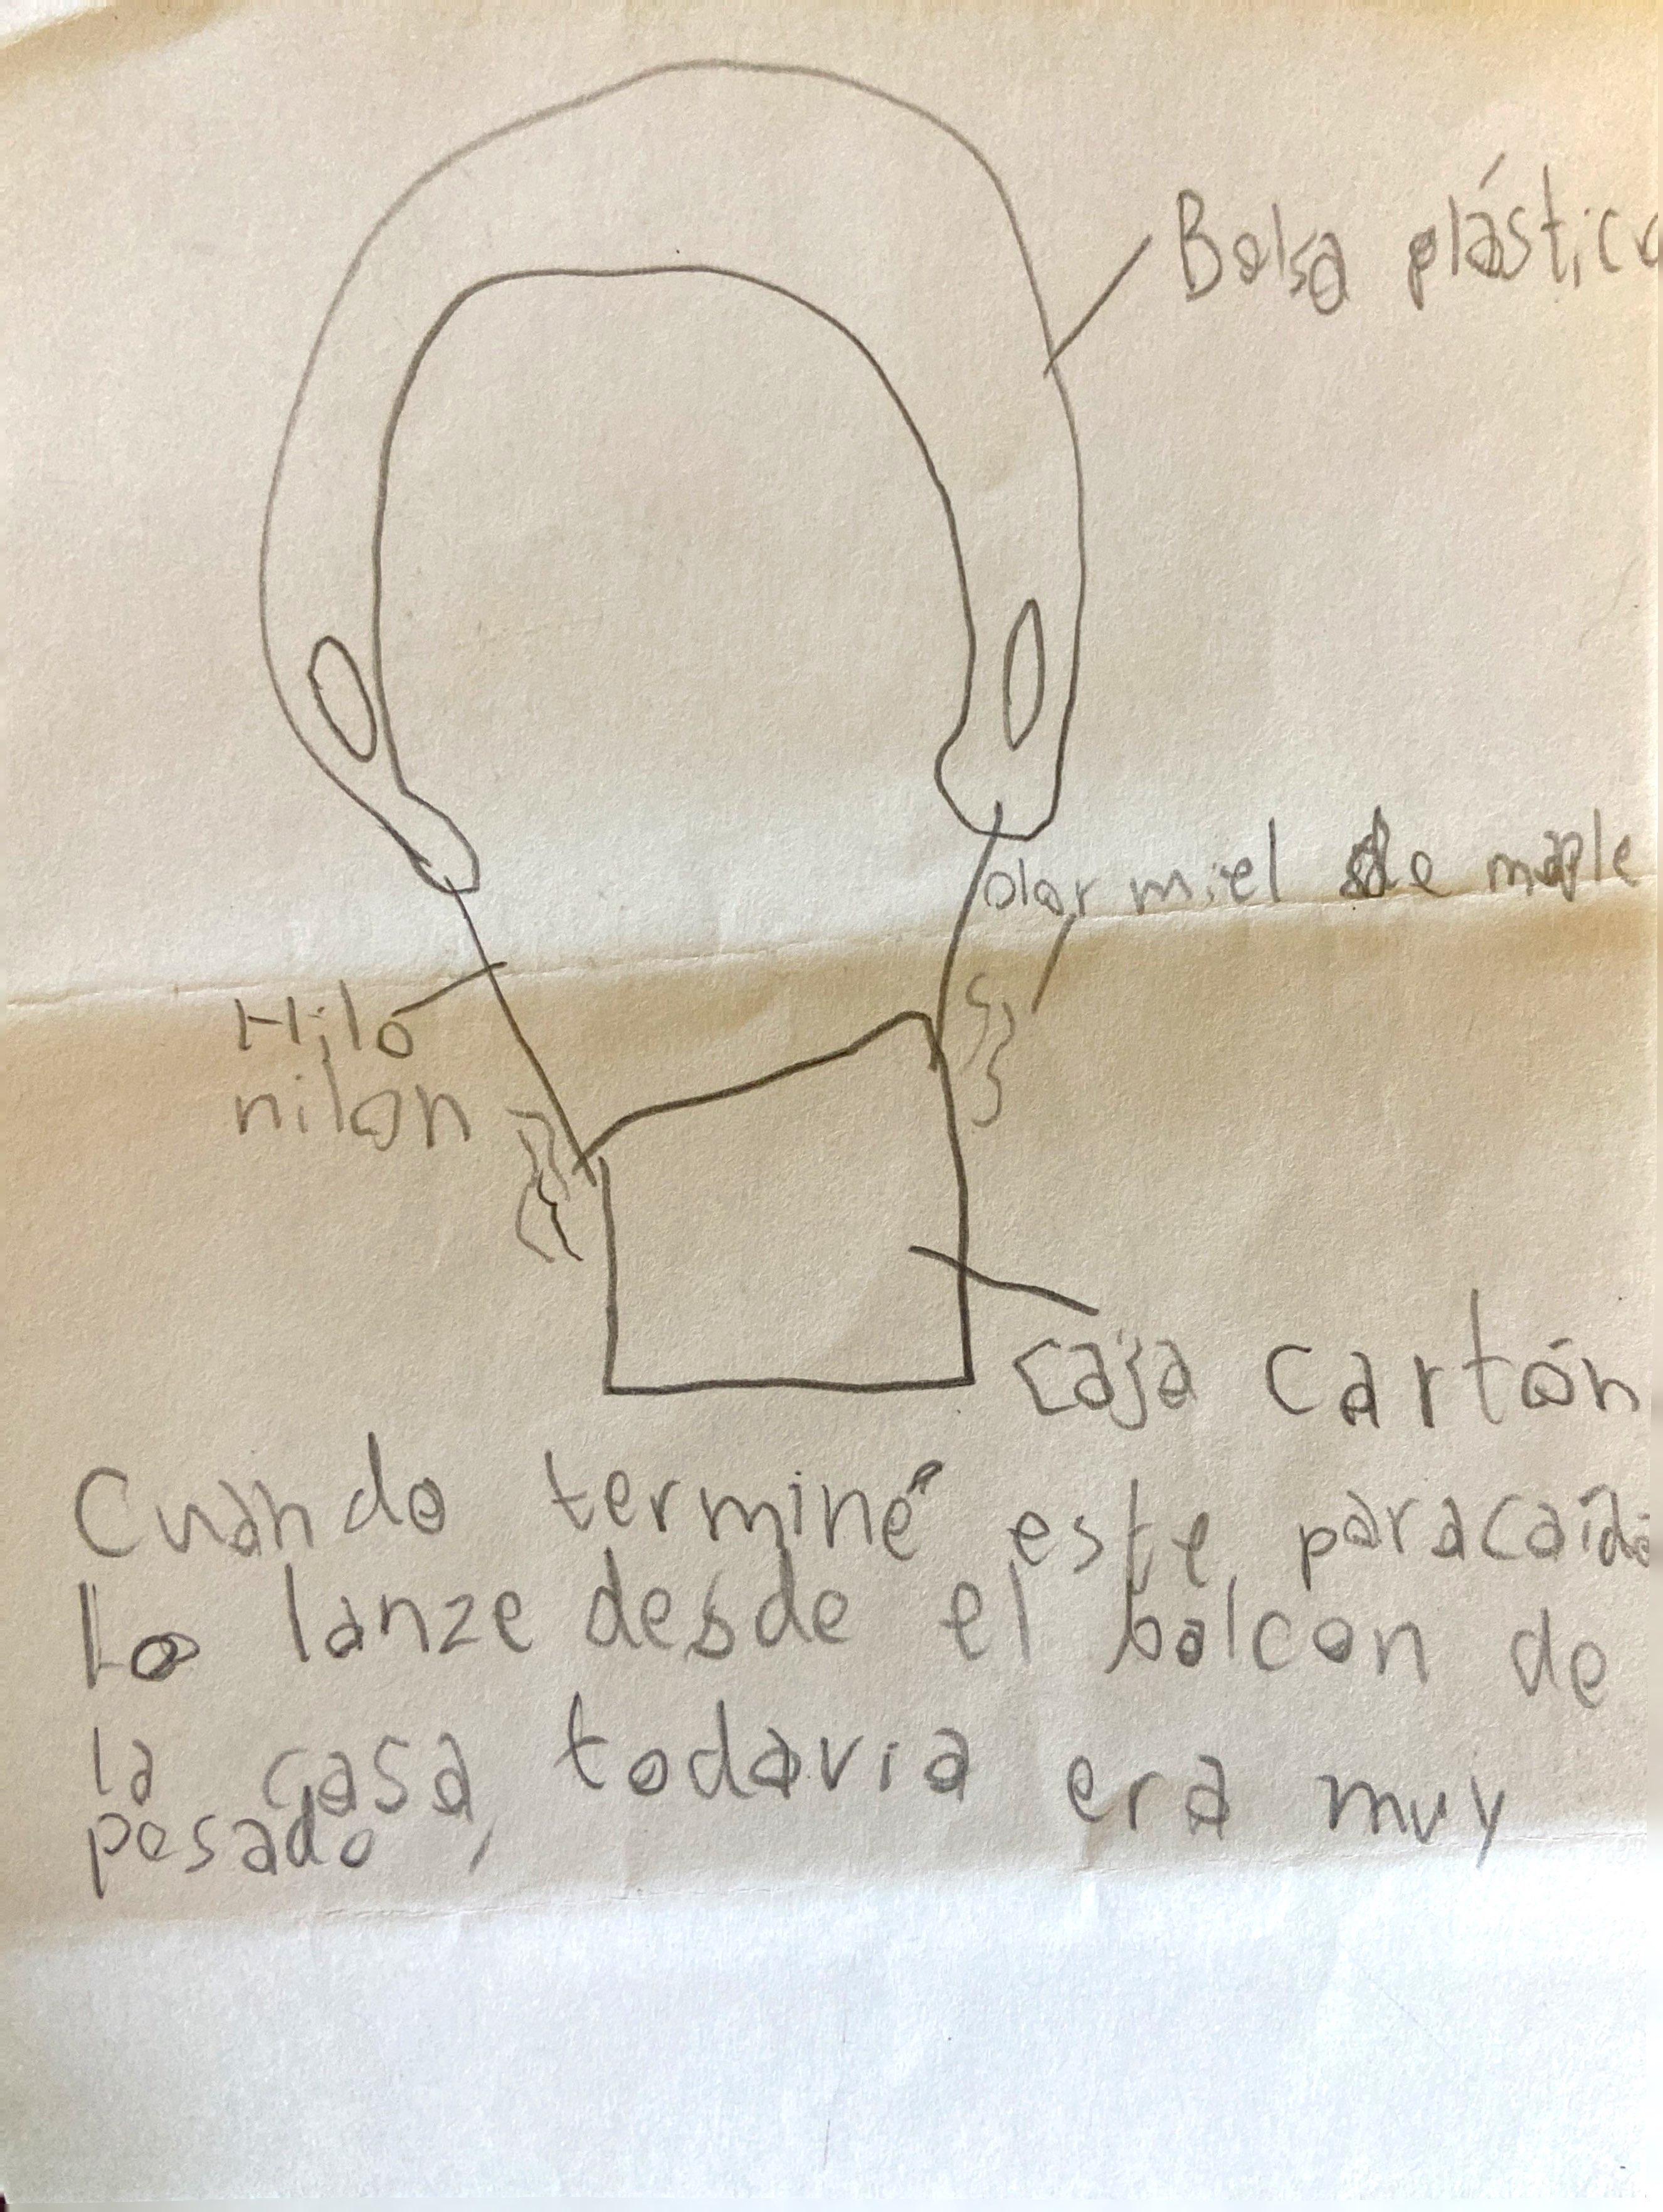 Bolsa plástica
olor miel de maple
Hilo
nilon
caja cartón
Cuando terminé este paracaida
Lo lanze desde el balcon de
la casa, todavia era muy
pesado